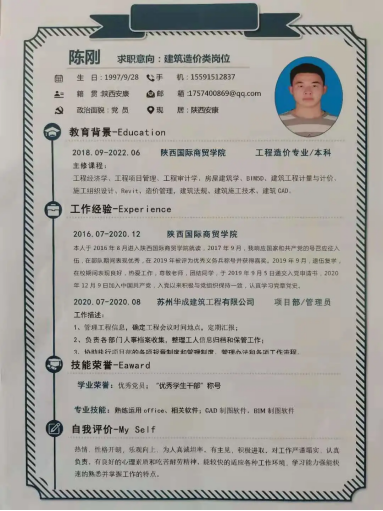 陈刚 求职意向：建筑造价类岗位
生 日：1997/9/28 手 机：15591512837
籍 贯：陕西安康 邮 箱：1757400869@qq.com
政治面貌：党 员 现 居：陕西安康
教育背景-Education
2018.09-2022.06 陕西国际商贸学院 工程造价专业/本科
主修课程：
工程经济学、工程项目管理、工程审计学、房屋建筑学、BIM5D、建筑工程计量与计价、
施工组织设计、Revit、造价管理、建筑法规、建筑施工技术、建筑CAD.
工作经验-Experience
2016.07-2020.12 陕西国际商贸学院
本人于2016年6月进入陕西国际商贸学院就读，2017年9月，我响应国家和共产党的号召应征入
伍，在部队期间表现优秀，在2019年被评为优秀义务兵称号并获得嘉奖。2019年9月，退伍复学，
在校期间表现良好，热爱工作，尊敬老师，团结同学，于2019年9月5日递交入党申请书，2020
年12月9日加入中国共产党，入党以来积极与党组织保持一致，认真学习党章党史。
2020.07-2020.08 苏州华成建筑工程有限公司 项目部/管理员
工作描述：
1、管理工程信息，确定工程会议时间地点，定期汇报；
2、负责各部门人事档案收集，整理工人信息归档和保管工作；
3、协助执行项目部的各项规章制度和管理制度，管理办法和各项工作流程。
技能荣誉-Eaward
学业荣誉：优秀党员；“优秀学生干部”称号
专业技能：熟练运用office、相关软件；CAD制图软件，BIM制图软件
自我评价-My Self
热情、性格开朗、乐观向上，为人真诚坦率，有主见，积极进取，对工作严谨踏实，认真
负责，有良好的心理素质和吃苦耐劳精神。能较快的适应各种工作环境，学习能力强能快
速的熟悉并掌握工作的特点。